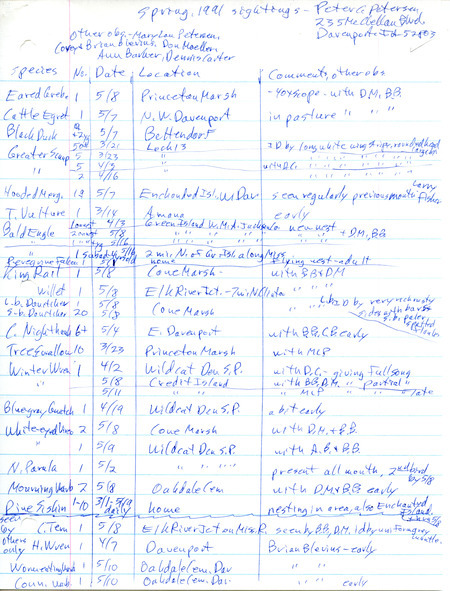 Spring, 1991 sightings - Peter C Petersen
235 McClellan Blvd.
Davenport, IA 52803
Other obs - Mary Lou Petersen,
Corey & Brian Blevins, Don Moeller,
Ann Barker, Dennis Carter
Species No. Date Location Comments, other obs
Eared Grebe 1 5/8 Princeton Marsh - 40X scope - with D.M., B.B.
Cattle Egret 1 5/7 N.W. Davenport in pasture " " "
Black Duck 5/7 Bettendorf
Greater Scaup 3/21 Lock 13 ID by long white wing stripe, rounded head
" 5 3/23 " " " "
" 5 4/5 " with D.C. " " "
" 2 4/16 " " " "
Hooded Merg. 12 5/7 Enchanted Isl., W. Dav seen regularly previous month Larry Fisher
T. Vulture 1 3/14 Amana early
Bald Eagle 4/3 Green Island W.M.A. Jackson Co new nest
" 5/8 " " " " + D.M., B.B.
" 5/16 " " "
" 5/16 2 mi. N. of Gr. Isl. along Miss flying nest - adult
Peregrine Falcon 1 home
King Rail 1 5/8 Cone Marsh - with BB & DM
Willet 1 5/8 Elk River Jct. - 7 mi N Clinton " "
L-b. Dowitcher 1 5/8 " " ID by very rich rusty
S-b. Dowitcher 20 5/8 Cone Marsh sides with bars
C. Nighthawk 6+ 5/4 E. Davenport with B.B., C.B. early
Tree Swallow 10 3/23 Princeton Marsh with MLP
Winter Wren 1 4/2 Wildcat Den S.P. with D.C. - giving full song
" 5/8 Credit Island with BB, D.M. " partial "
5/11 " " " MLP " late
Bluegray Gnatc 1 4/19 Wildcat Den S.P. a bit early
White-eyed Vireo 2 5/8 Cone Marsh with D.M. + B.B.
" 1 5/9 Wildcat Den S.P. with A.B. + B.B.
N. Parula 1 5/2 " " " present all month, 2nd bird by 5/8
Mourning Warb 2 5/8 Oakdale Cem with D.M. & B.B early
Pine Siskin 1-10 3/1-5/19 daily home nesting in area, also Enchanted Island
seen by others only
C. Tern 1 5/8 Elk River Jct on Miss. R. seen by BB, DM, id by uniform gray mantle.
H. Wren 1 4/7 Davenport Brian Blevins - early
Worm eating Warb 1 5/10 Oakdale Cem. Dav
Conn. Warb. 1 5/10 Oakdale Cem. Dav. " " early